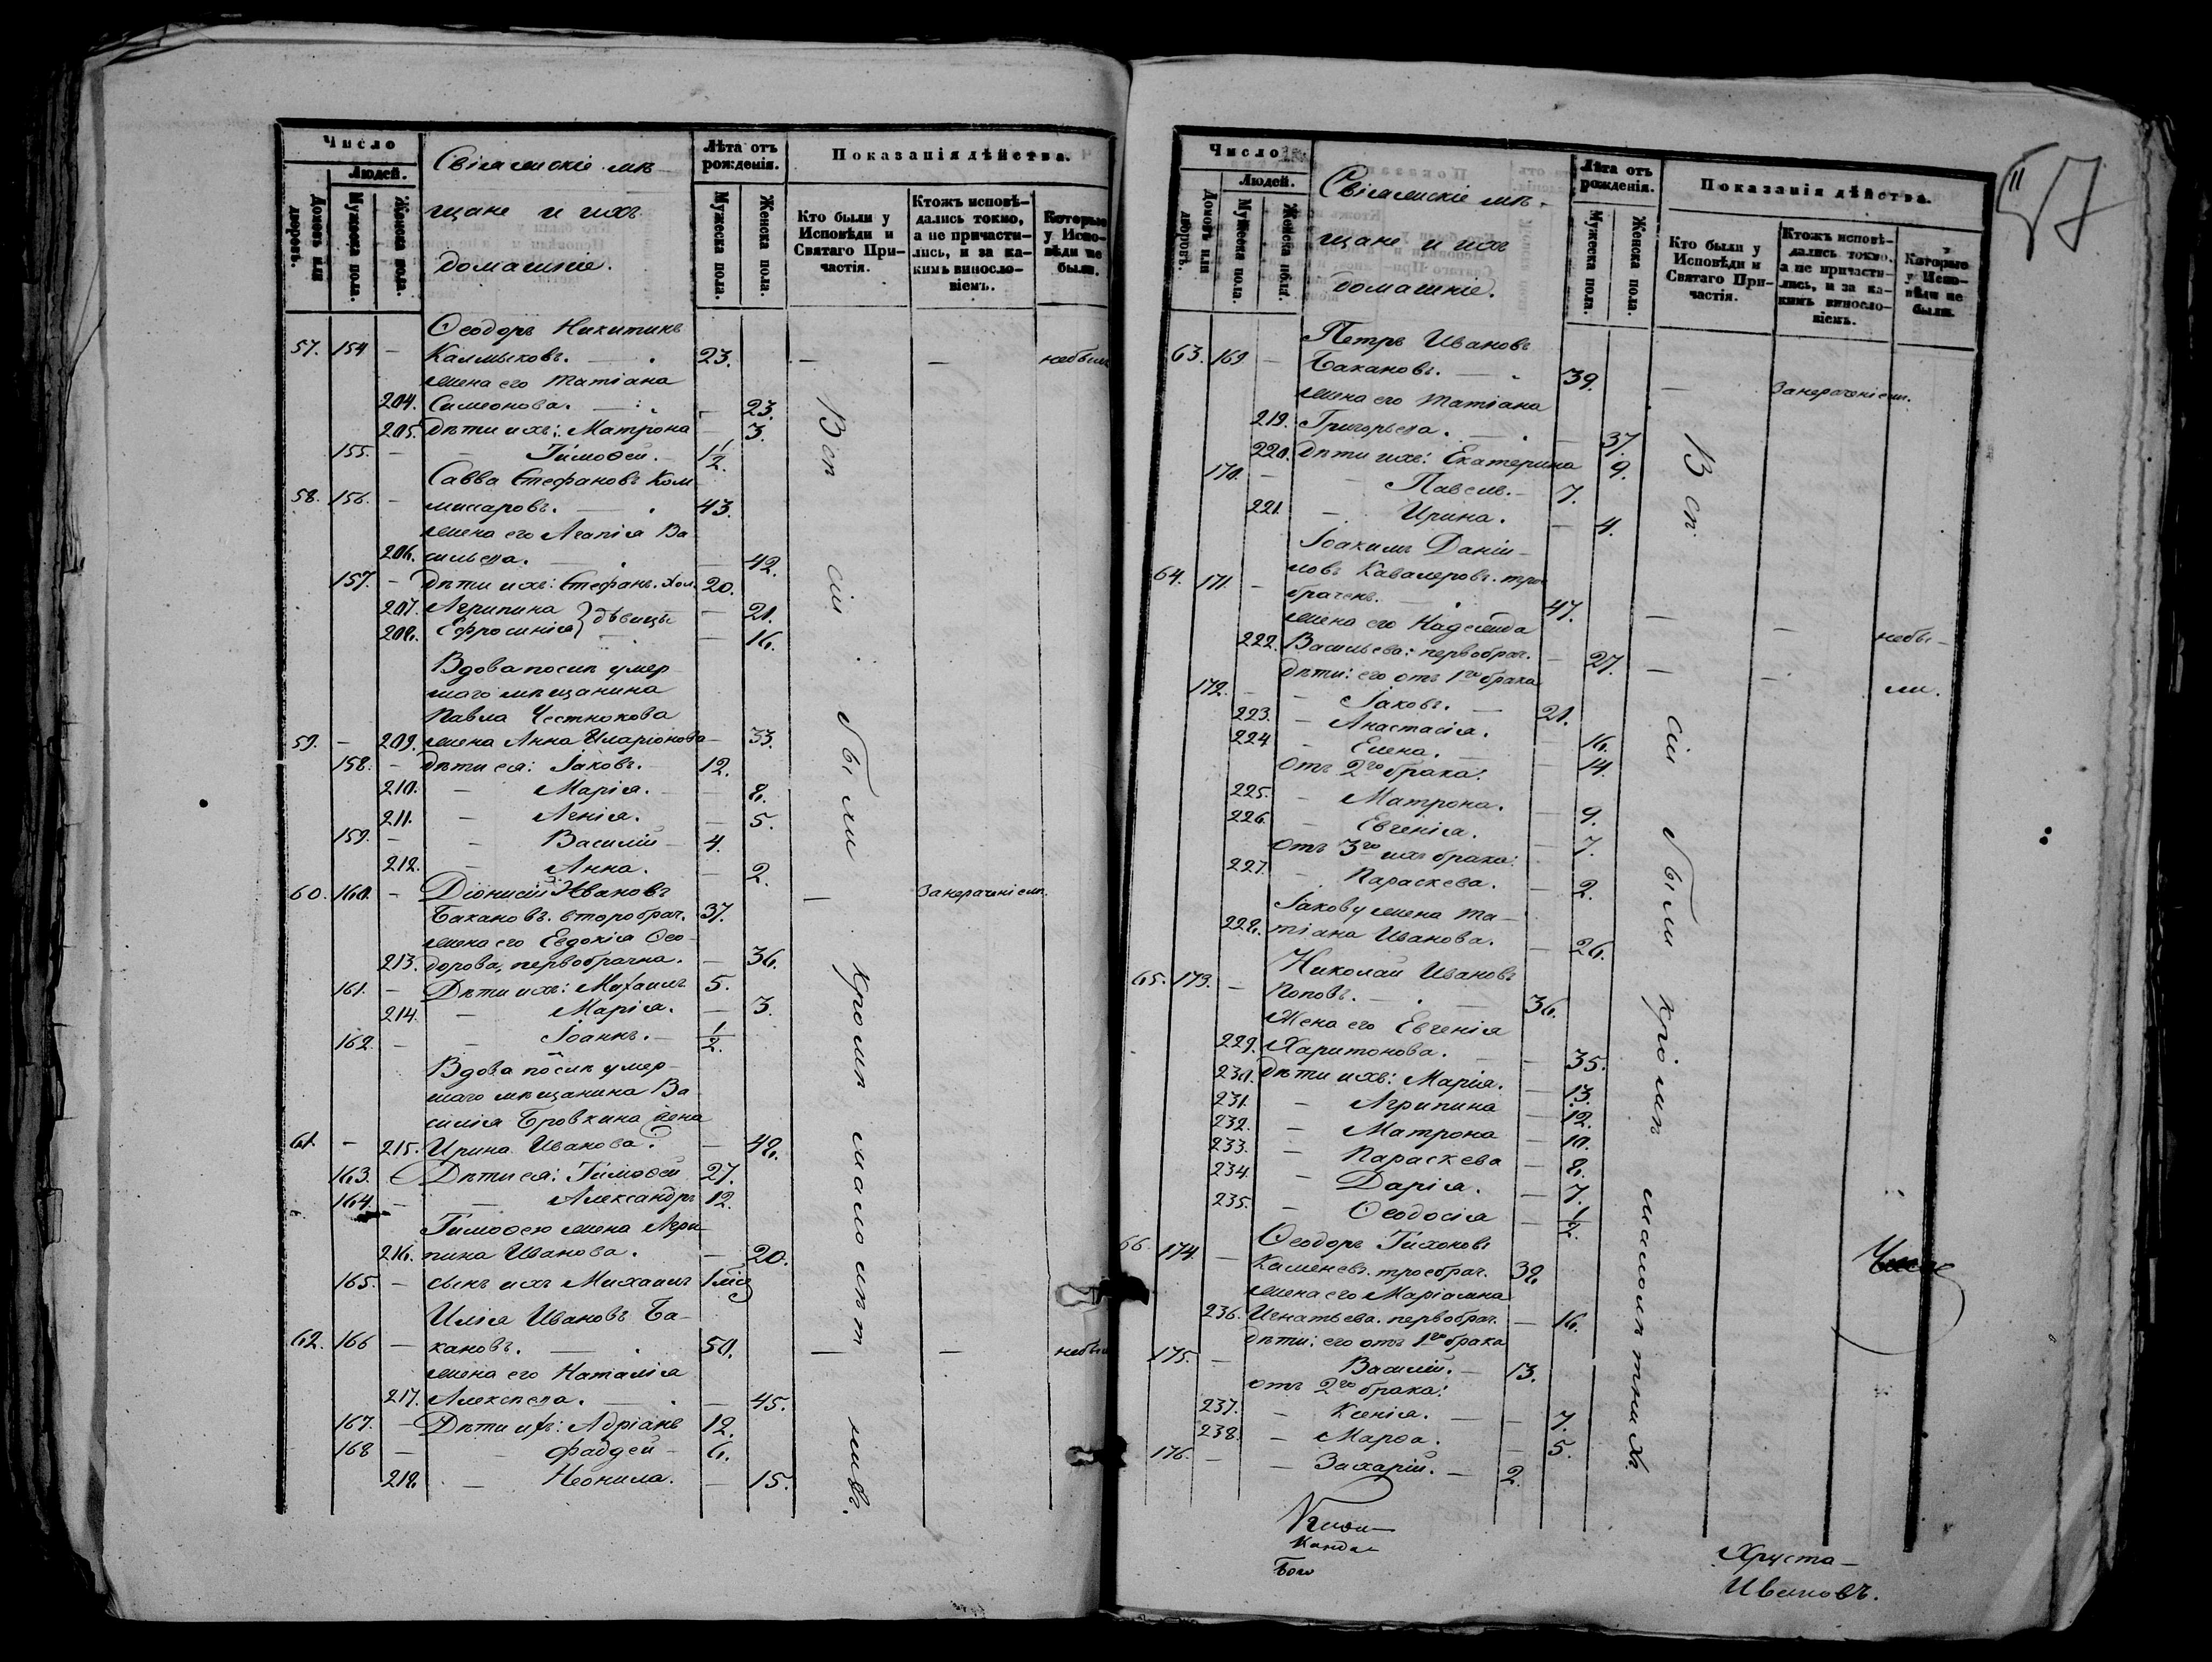 Число
Людей.
Домовъ или дворовъ.
Мужеска пола.
Женска пола.
мѣ-
щане и ихъ
домашніе.
Лѣта отъ рожденія.
Мужеска пола.
Женска пола.
Показанія дѣйства.
Кто были у Исповѣди и Святаго Причастія.
Ктожъ исповѣ-
дались токмо,
а не причасти-
лись, и за ка-
кимъ винословіемъ.
Которые
у Испо-
вѣди не
были.
Ѳеодоръ Никитинъ
57. 154 – Калмыковъ. – 23. – – небыли
жена его Татіана
204. Симеонова. – 23.
205. дѣти ихъ: Матрона – 3.
155. – – Тимоѳей. 1 1/2.
Савва Стефановъ Ком
58. 156. – миссаровъ. – 43.
жена его Агапія Ва
206. сильева. – 42.
157. – дѣти ихъ: Стефанъ. хол. 20.
207. Агрипина } дѣвицы – 21.
208. Ефросинія – 16.
Вдова послѣ умер
шаго мѣщанина
Павла Честнокова
59. – 209. жена Анна Иларіонова – 33.
158. – дѣти ея: Іаковъ. – 12.
210. – Марія. – 8.
211. – Агнія. – 5.
159. – – Василій – 4.
212. – Анна. – 2.
60. 160. – Діонисій Ивановъ – Занераченіемъ.
Бакановъ. второбрач. 37.
жена его Евдокія Ѳео
213. дорова, первобрачна. – 36.
161. – Дѣти ихъ: Михаилъ 5.
214. – Марія. – 3.
162. – – Іоаннъ. – 1/2.
Вдова послѣ умер
шаго мѣщанина Ва
силія Бровкина жена
61. – 215. Ирина Иванова. – 48.
163. Дѣти ея: Тимоѳей 27.
164. – – Александръ 12.
Тимоѳею жена Агри
216. пина Иванова. – 20.
165. – сынъ ихъ Михаилъ 1 мѣс
Илія Ивановъ Ба-
62. 166 – кановъ. – 50. – – небыл
жена его Наталія
217. Алексеева. – 45.
167. – Дѣти ихъ: Адріанъ 12.
168 – – Фаддей – 6.
218. – Неонила. – 15.
Всѣ сіи были кромѣ малолѣтнихъ.
Число
Людей.
Домовъ или дворовъ.
Мужеска пола.
Женска пола.
мѣ-
щане и ихъ
домашніе.
Лѣта отъ рожденія.
Мужеска пола.
Женска пола.
Показанія дѣйства.
Кто были у Исповѣди и Святаго Причастія.
Ктожъ исповѣ-
дались токмо,
а не причасти-
лись, и за ка-
кимъ винословіемъ.
Которые
у Испо-
вѣди не
были.
57
Петръ Ивановъ
63. 169 – Бакановъ. – 39. – Занераченіемъ.
жена его Татіана
219. Григорьева. – 37.
220. дѣти ихъ: Екатерина 9.
170. – – Павелъ. – 7.
221. – Ирина. – 4.
Іоакимъ Даніи-
64. 171. – ловъ Кавалеровъ. трое
брачен. 47. – – небы-
жена его Надежда
222. Васильева: первобрач. – 27. – – ли.
дѣти: его отъ 1го брака
172. – – Іаковъ. – 21.
223. – Анастасія. – 16.
224 – Елена. – 14.
отъ 2го брака:
225. – Матрона. – 9.
226. – Евгенія. – 7.
отъ 3го ихъ брака:
227. – Параскева. – 2.
Іакову жена Та-
228. тіана Иванова. – 26.
Николай Ивановъ
65. 173. – Поповъ. – 36.
Жена его Евгенія
229. Харитонова. – 35.
230. дѣти ихъ: Марія. – 13.
231. – Агрипина – 12.
232. – Матрона – 10.
233. – Параскева – 8.
234. – Дарія. – 7.
235. – Ѳеодосія – 1/2.
Ѳеодоръ Тихоновъ
66. 174. – Каменевъ. троебрач. 38.
жена его Маріамна
236. Игнатьева. первобрач. – 16.
дѣти: его отъ 1го брака
175. – Василій. – 13.
отъ 2го брака:
237. – Ксенія. – 7.
238. – Марѳа. – 5.
176. – – Захарій. – 2.
Всѣ сіи были кромѣ малолѣтнихъ.
Канда-
Бого
Хруста-
Ивановъ.